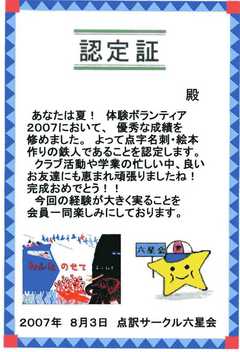 認定証
殿
あなたは夏！ 体験ボランティア
2007において、優秀な成績を
修めました。よって点字名刺・絵本
作りの鉄人であることを認定します。
クラブ活動や学業の忙しい中、良い
お友達にも恵まれ頑張りましたね！
完成おめでとう！！
今回の経験が大きく実ることを
会員一同楽しみにしております。
みんな のせて
六星会
2007年 8月3日 点訳サークル六星会